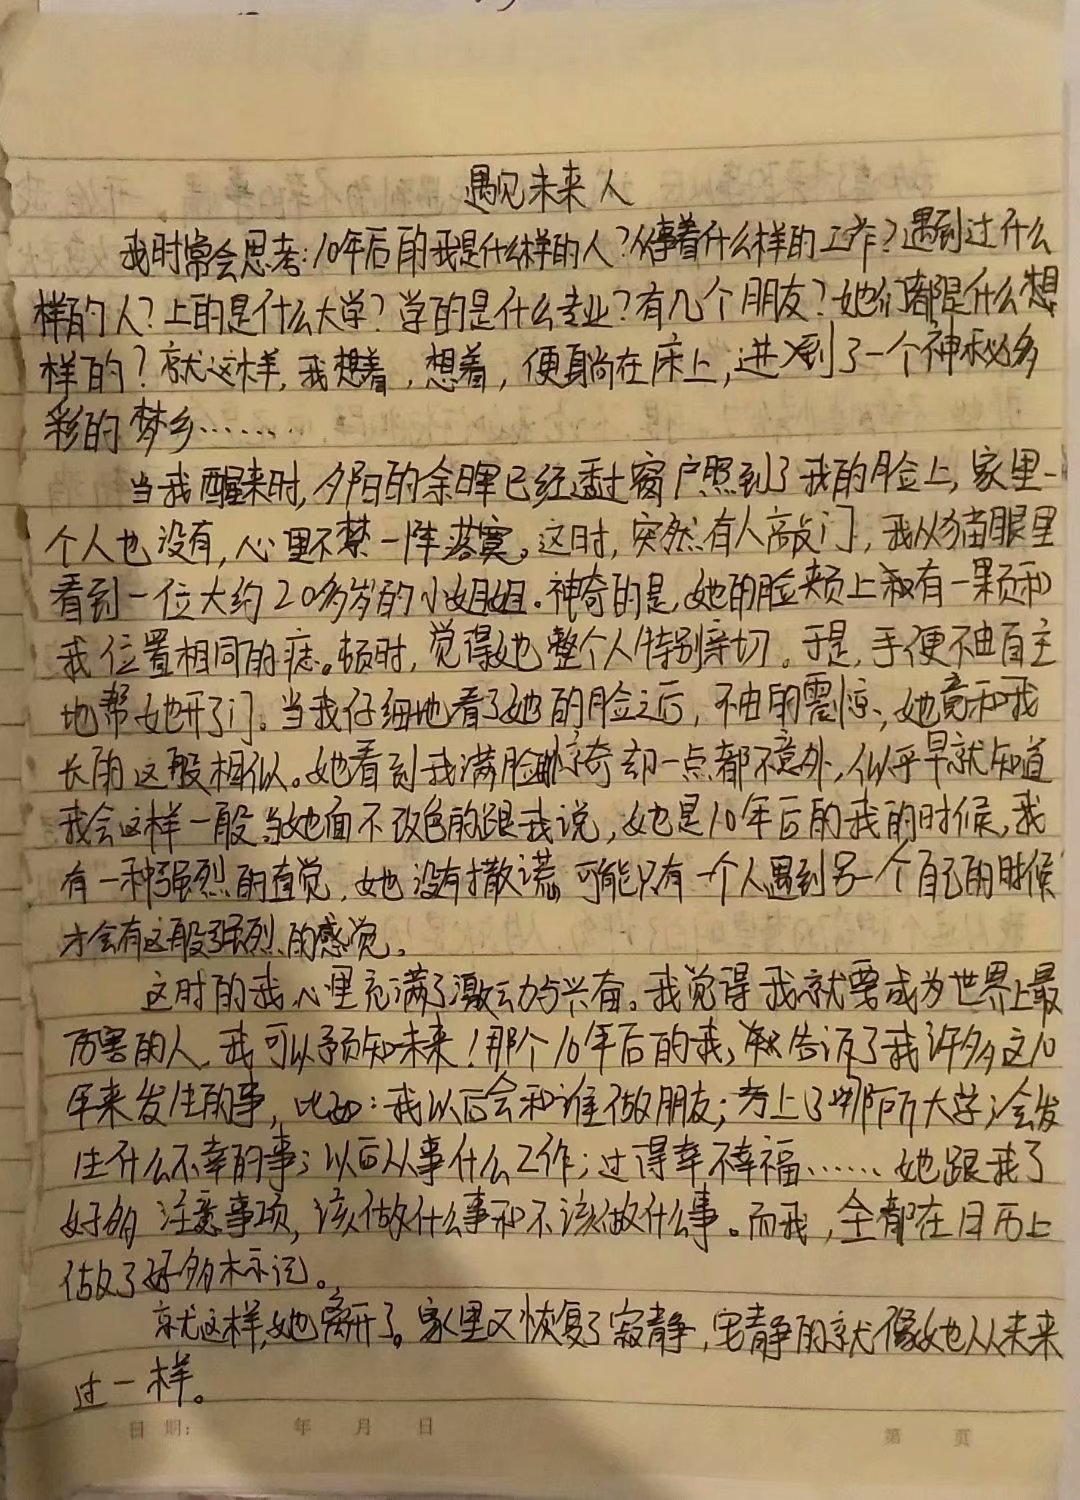 遇见未来人
我时常会思考:10年后的我是什么样的人?从事着什么样的工作?遇到过什么
样的人?上的是什么大学?学的是什么专业?有几个朋友?她们都是什么想
样的?就这样,我想着,想着,便躺在床上,进到了一个神秘多
彩的梦乡……
当我醒来时,夕阳的余晖已经透过窗户照到了我的脸上,家里一
个人也没有,心里不禁一阵落寞。这时,突然有人敲门,我从猫眼里
看到一位大约20多岁的小姐姐。神奇的是,她的脸颊上有一颗和
我位置相同的痣。顿时,觉得她整个人特别亲切。于是,手便不由自主
地帮她开了门。当我仔细地看了她的脸之后,不由的震惊,她竟和我
长的这般相似。她看到我满脸惊奇却一点都不意外,似乎早就知道
我会这样一般。当她面不改色的跟我说,她是10年后的我的时候,我
有一种强烈的直觉,她没有撒谎。可能只有一个人遇到另一个自己的时候
才会有这般强烈的感觉。
这时的我心里充满了激动与兴奋。我觉得我就要成为世界上最
厉害的人,我可以预知未来!那个10年后的我,告诉了我许多这10
年来发生的事,比如:我以后会和谁做朋友;考上了哪所大学;会发
生什么不幸的事;以后从事什么工作;过得幸不幸福……她跟我了
好多注意事项,该做什么事和不该做什么事。而我,全都在日历上
做了好多标记。
就这样,她离开了。家里又恢复了寂静,安静的就像她从未来
过一样。
日期: 年 月 日
第 页